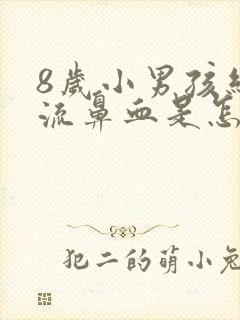 8歲小男孩
流鼻血是怎
犯二的萌小兔